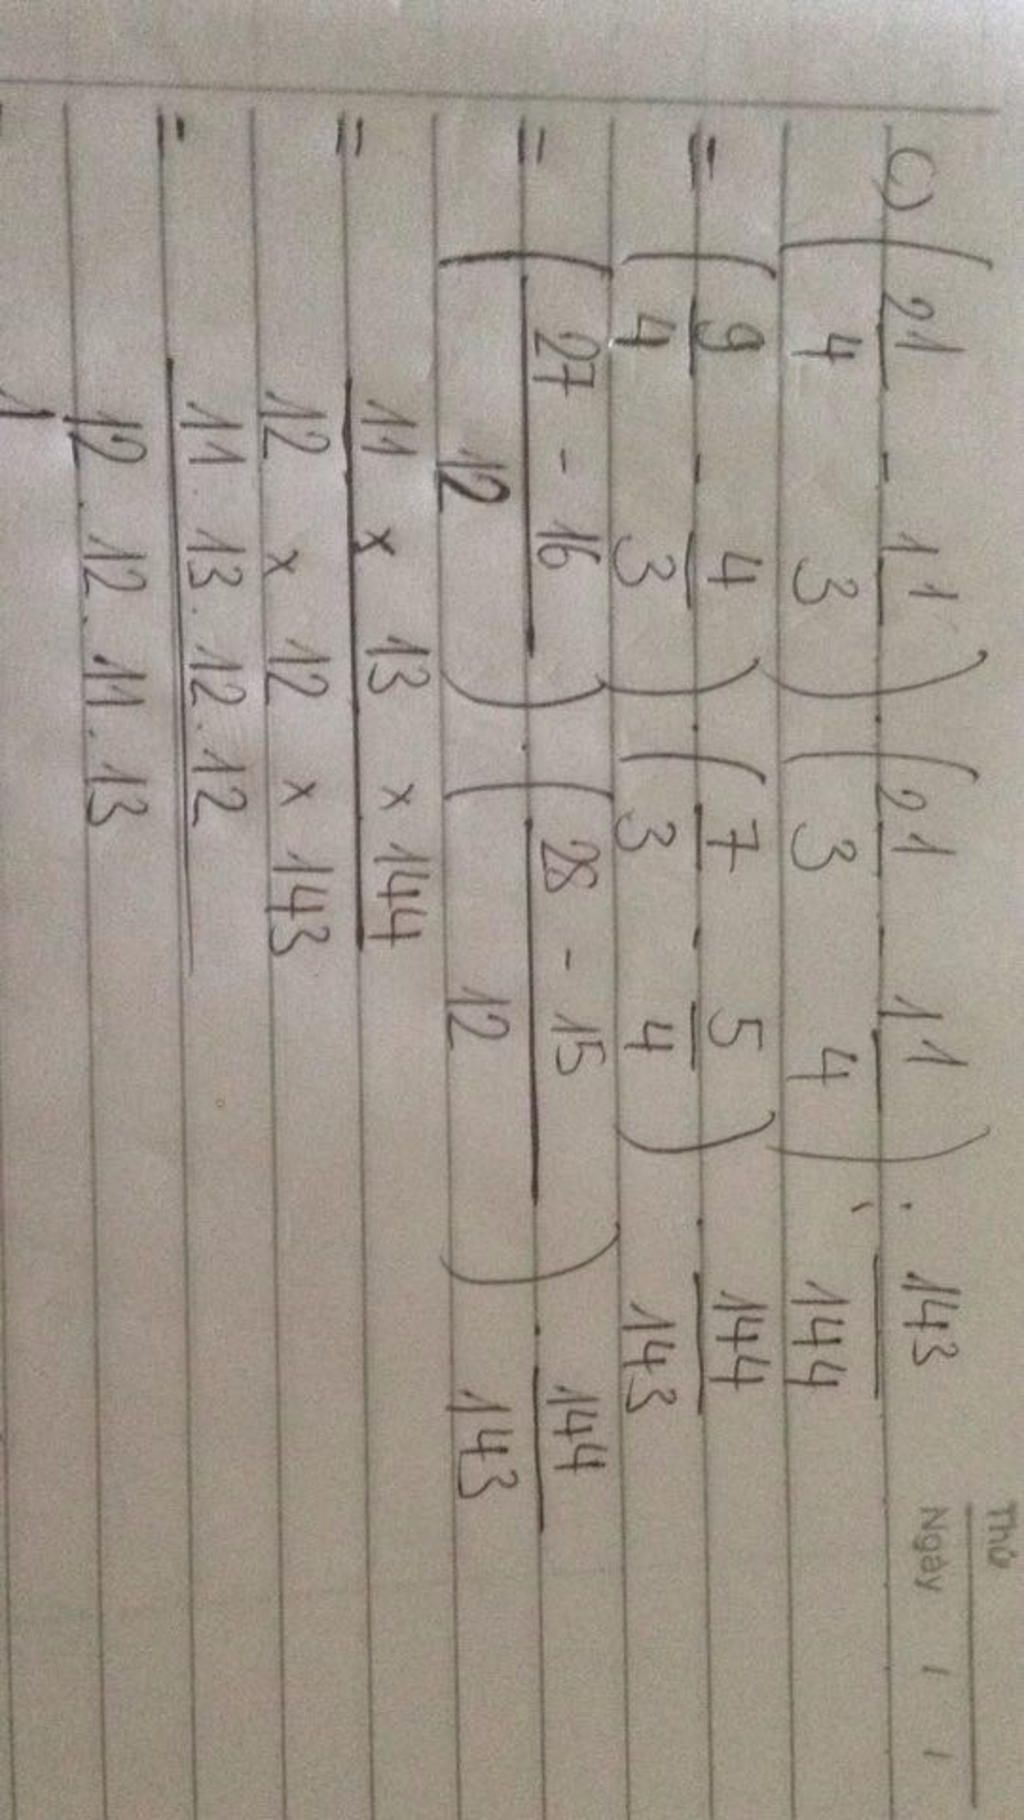 Thứ
Ngày / /
c) (2 1/4 - 1 1/3) . (2 1/3 - 1 1/4) : 143/144
= (9/4 - 4/3) . (7/3 - 5/4) . 144/143
= (27 - 16/12) . (28 - 15/12) . 144/143
= 11 x 13 x 144/12 x 12 x 143
= 11 . 13 . 12 . 12/12 . 12 . 11 . 13
= 1